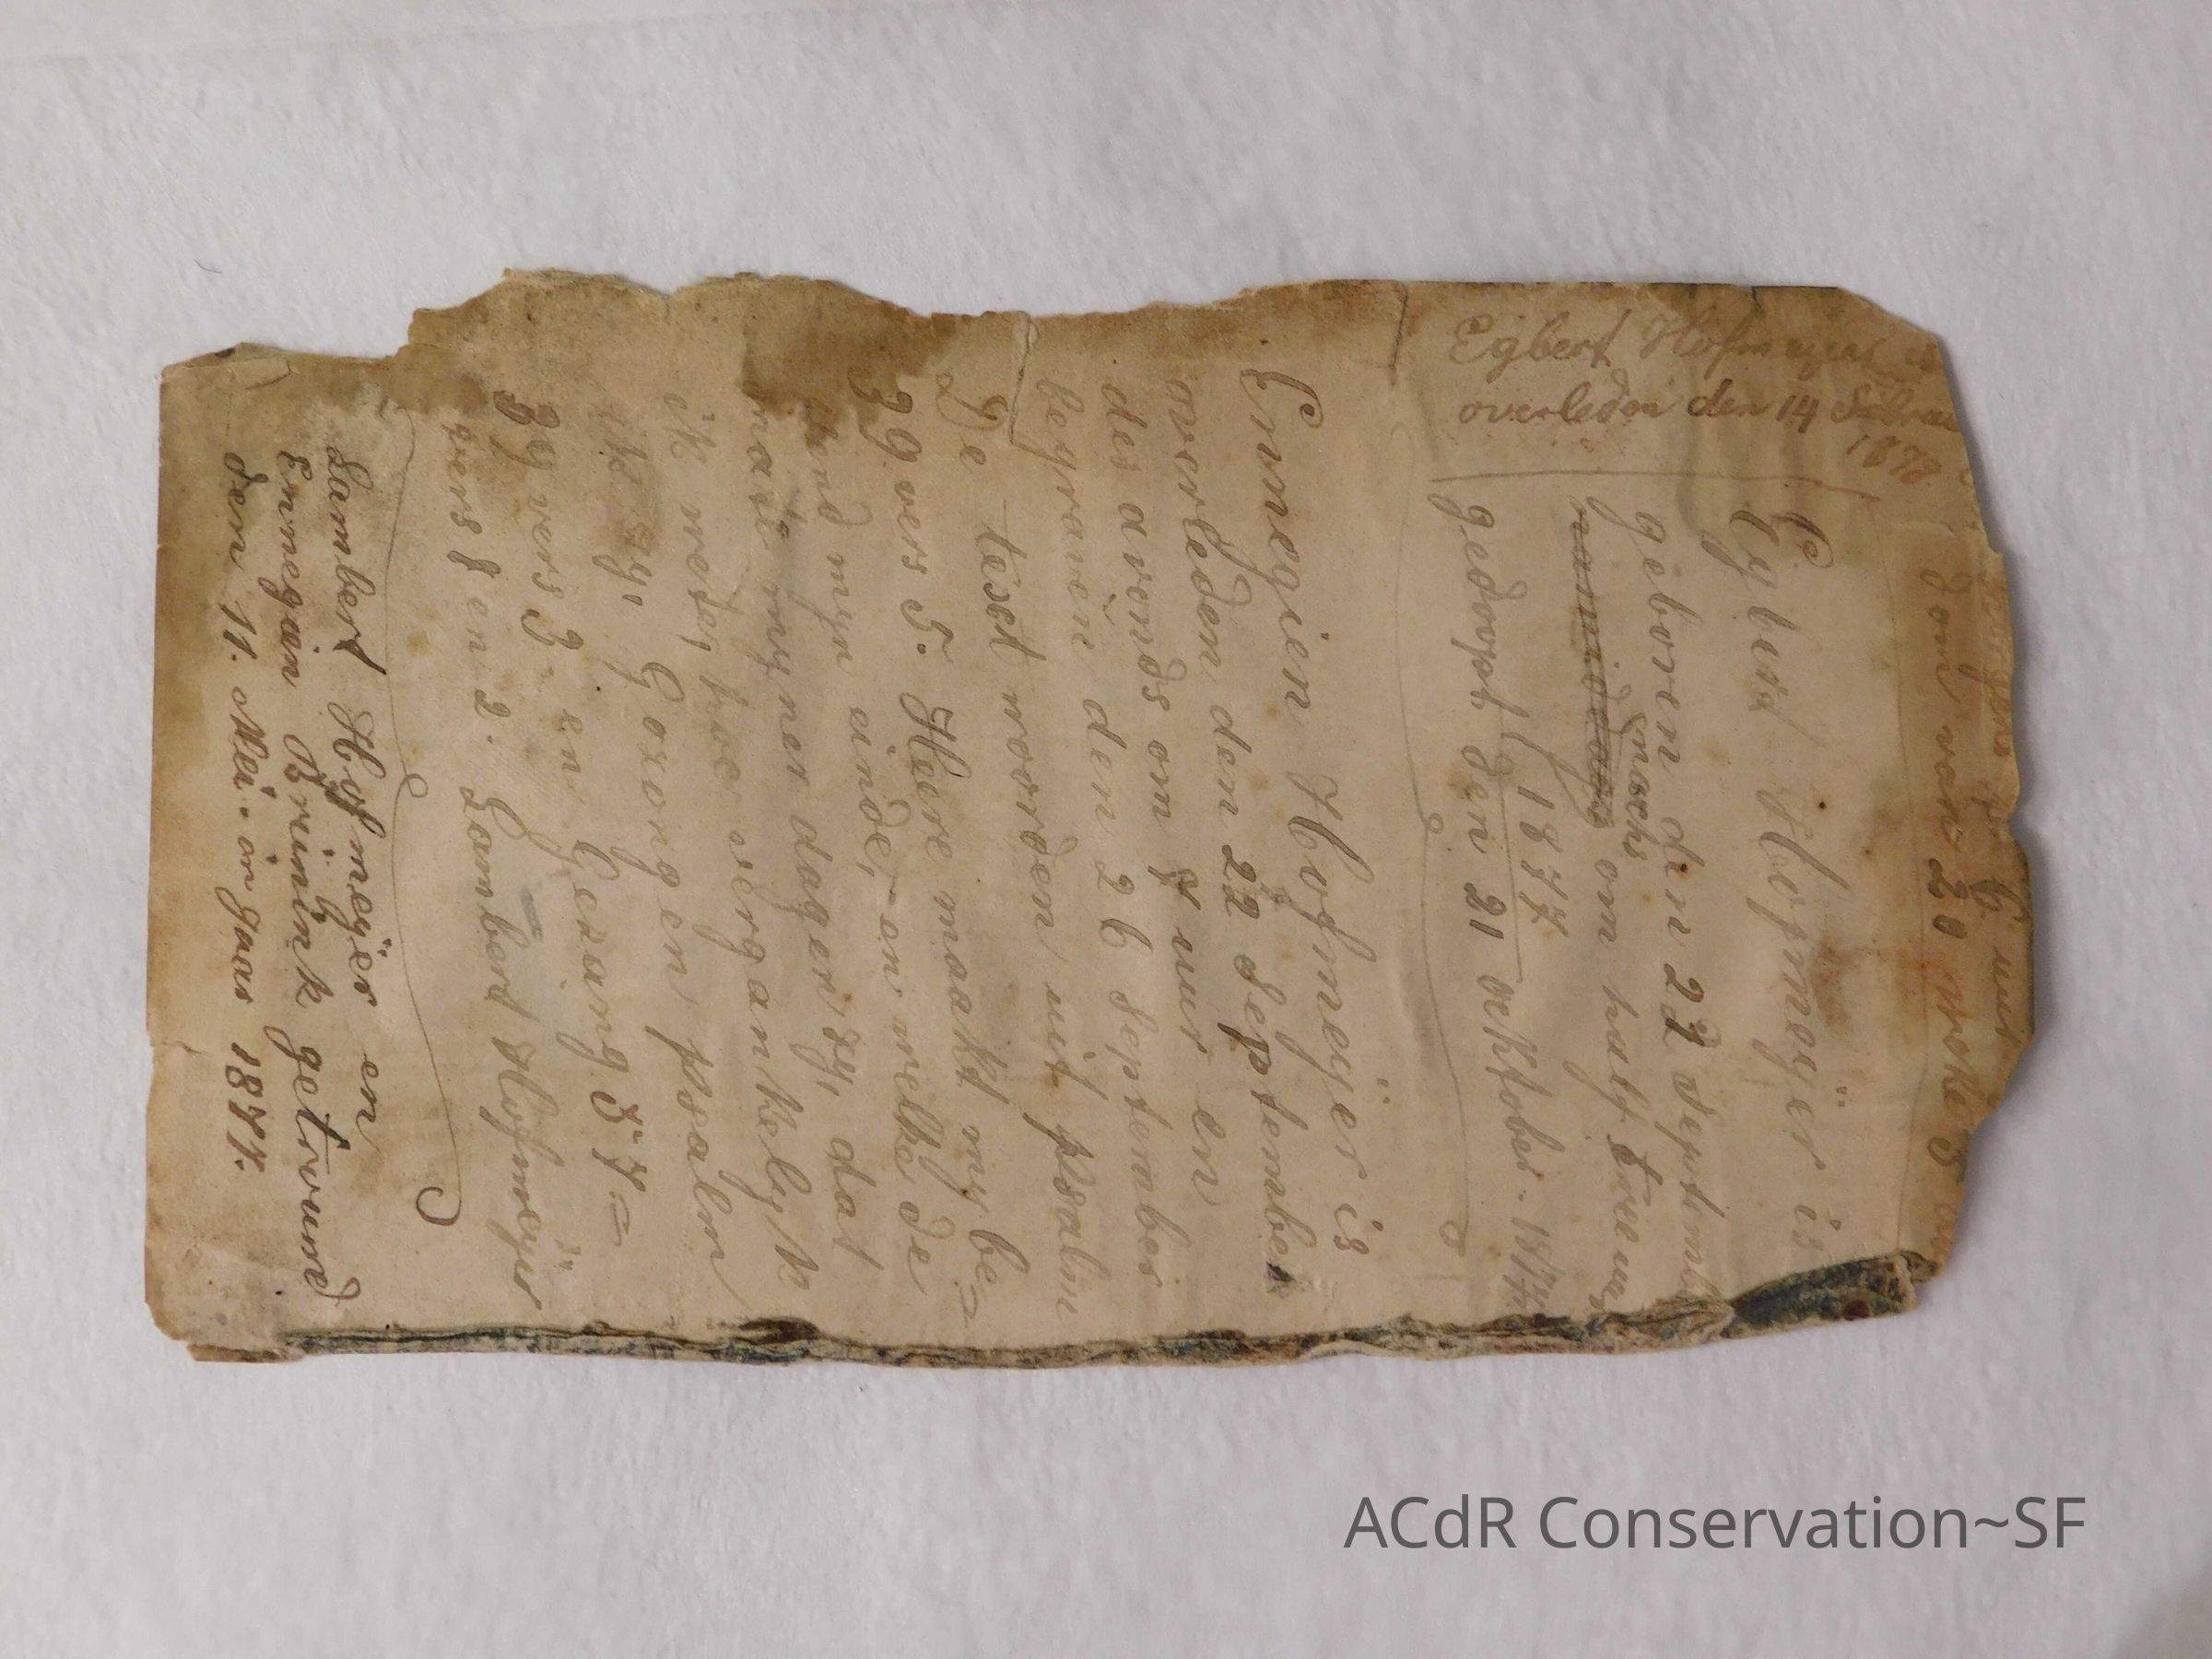 Egbert Hofmeijer is
overleden den 14
1878
uur
Zont van 20 weke
Egbert Hofmeÿer is
geboren den 22 Septemb
smorhs
om half
1877
gedoopt den 21 ocktober. 1877.
Ennegien Hofmeÿer is
overleden den 22 September
des avonds om 7 uur en
begraven den 26 September
De text woorden uit psalm
39 vers 5. Heere maakt my be=
kend myn einde, en welke de
mate myner dagen zy, dat
ik wete, hoe vergankelyk
ik zy. Gezongen psalm
39 vers 3 en Gezang 57=
vers 1 en 2. Lambert Hofmeÿer
Lambert Hofmeÿer en
Ennegien Brünink getrouwd
den 11. Mei. in jaar 1877.
ACdR Conservation~SF